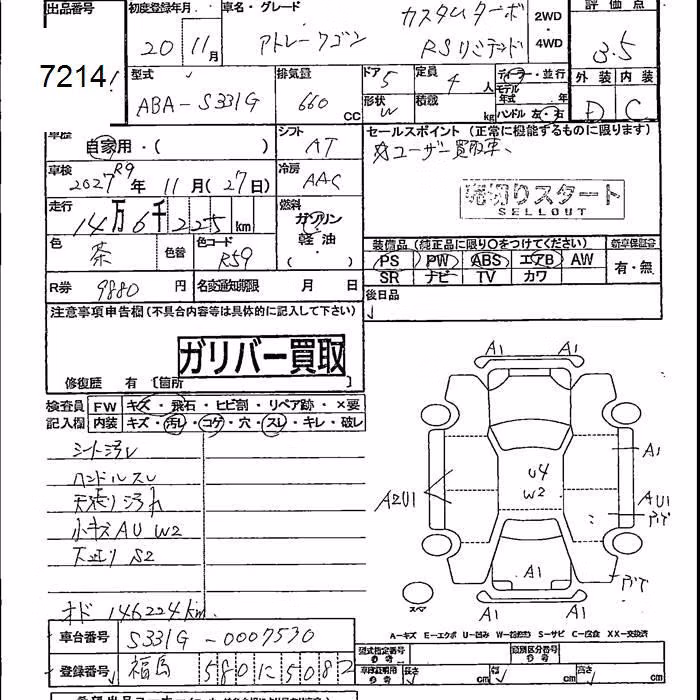 出品番号
7214
初度登録年月
20年11月
車名・グレード
アトレーワゴン
カスタムターボ
RSリミテッド
2WD
・
4WD
評価点
3.5
型式
ABA-S331G
排気量
660 CC
ドア 5
形状 W
定員 4 人
積載 kg
ディーラー・並行
モデル年式 年
ハンドル 左・右
外装 内装
D C
車歴
自家用・( )
シフト
AT
セールスポイント (正常に機能するものに限ります)
☆ユーザー買取車、
売切りスタート
SELLOUT
車検
2027 R9年 11月(27日)
冷房
AAC
走行
14万6千225km
燃料
ガソリン
軽油
・( )
色
茶
色替
色コード
R59
装備品 (純正品に限り○をつけてください)
新車保証書
PS PW ABS エアB AW
SR ナビ TV カワ
有・無
R券 9880 円
名変通知期限 月 日
後日品
注意事項申告欄(不具合内容等は具体的に記入して下さい)
ガリバー買取
修復歴 有 [箇所 ]
検査員
記入欄
FW キズ・飛石・ヒビ割・リペア跡・×要
内装 キズ・汚レ・コゲ・穴・スレ・キレ・破レ
シート汚レ
ハンドルスレ
天張り汚れ
小キズAU W2
下廻りS2
オド 146224km
A1
A1
A1
U4
W2
A2U1
AU1
A1
A1
A1
スペア
A-キズ E-エクボ U-凹み W-補修跡 S-サビ C-腐食 XX-交換済
車台番号 S331G-0007530
登録番号 福島 580 に 5082
型式指定番号
参考
類別区分番号
参考
長さ cm 幅 cm 高さ cm